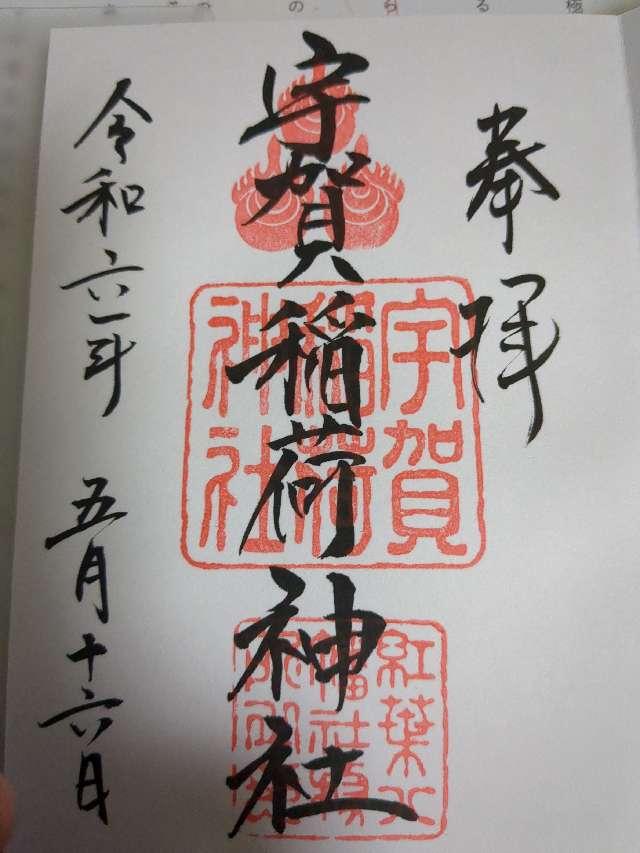 奉拝
宇賀稲荷神社
令和六年 五月十六日
宇賀
稲荷
神社
紅葉八
幡社務